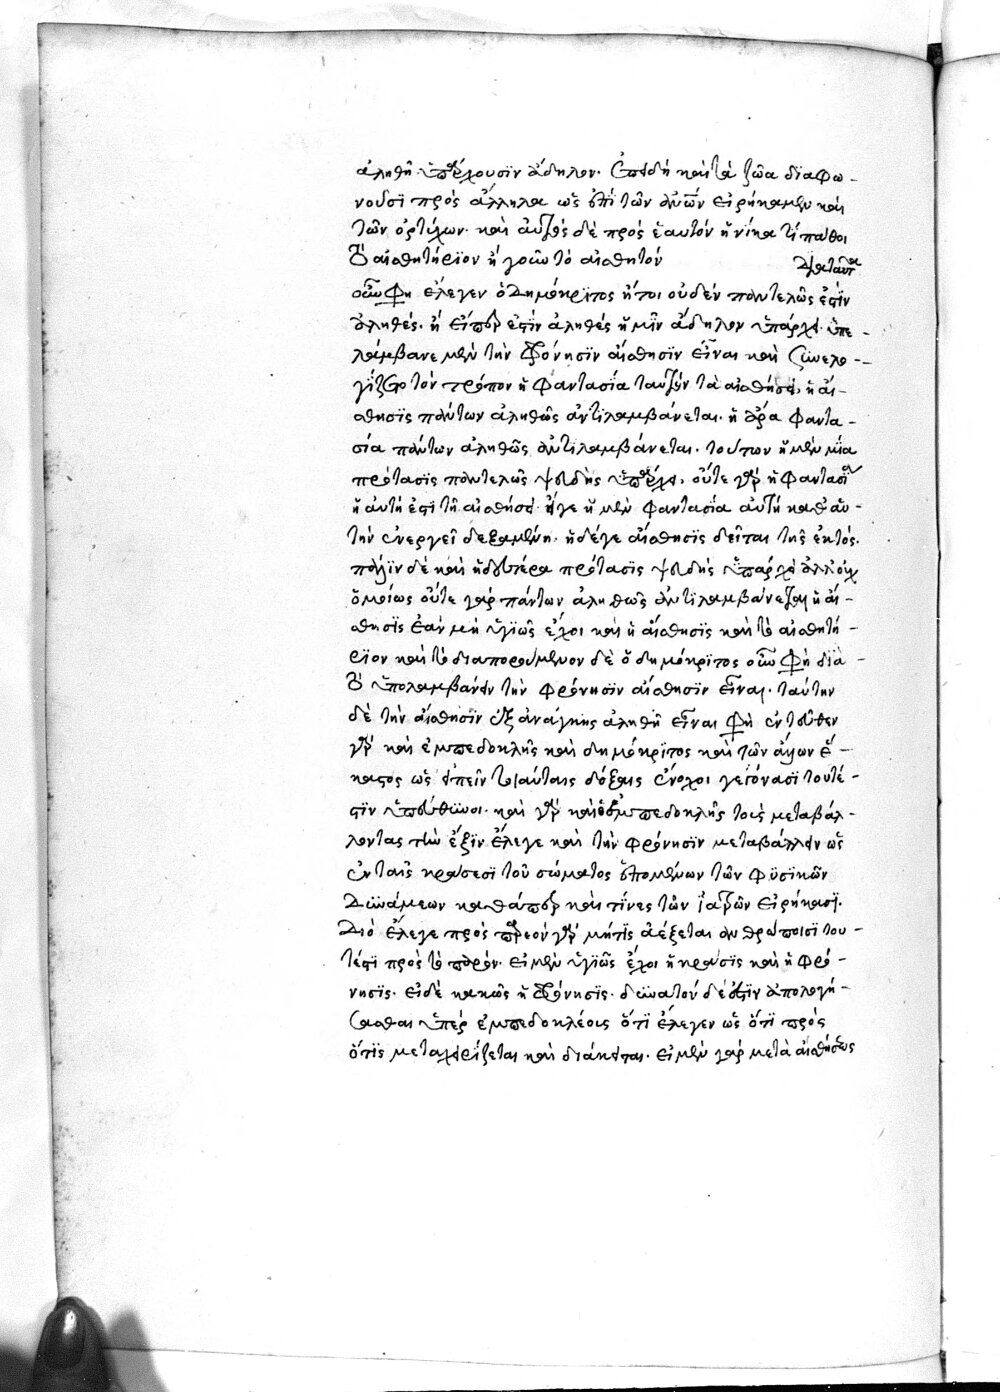 ἀληθῆ ὑπάρχουσϊν ἄδηλον. ἐπειδὴ καὶ τὰ ζῶα δϊαφω -
νοῦσϊ πρὸς ἄλληλα ὡς ἐπὶ τῶν εἰρήκαμεν καὶ
τῶν ὀρτύχων. καὶ αὐτὸς δὲ πρὸς ἑαυτὸν ἡνίκα τὶ πάθοι
τὸ αἰσθητήρϊον ἢ γοῦν τὸ αἰσθητὸν διὰ ταῦτα
οὖν φησὶ ἔλεγεν ὁ δημόκρϊτος ἤτοι οὐδὲν παντελῶς ἐστὶν
ἀληθές. ἢ εἴπερ ἐστὶν ἀληθὲς ἡμῖν ἄδηλον ὑπάρχει. ὑπε -
λάμβανε μὲν τὴν φρόνησϊν αἴσθησϊν εἶναι καὶ συνελο -
γίζετο τὸν τρόπον ἡ φαντασΐα ταυτὸν τὰ αἰσθήσει, ἡ αἴ -
σθησϊς πάντων ἀληθῶς ἀντϊλαμβάνεται. ἡ ἄρα φαντα -
σία πάντων ἀληθῶς ἀντϊλαμβάνεται. τούτων ἡ μὲν μΐα
πρότασϊς παντελῶς ψευδὴς ὑπάρχει, οὔτε γὰρ ἡ φαντασΐα
ἡ αὐτή ἐστι τῆ αἰσθήσει. εἴγε ἡ μὲν φαντασΐα αὐτὴ καθ αὑ -
τὴν ἐνεργεῖ δεξαμένη. ἡ δέγε αἴσθησϊς δεῖται τῆς ἐκτός.
πάλϊν δὲ καὶ ἡ δευτέρα πρότασϊς ψευδὴς ὑπάρχει
ὁμοίως οὔτε γὰρ πάντων ἀληθῶς ἀντϊλαμβάνεται ἡ αἴ -
σθησϊς ἐὰν μὴ ὑγϊῶς ἔχοι καὶ ἡ αἴσθησϊς καὶ τὸ αἰσθητή -
ρϊον καὶ τὸ διαπορούμενον δὲ ὁ δημόκρϊτος οὖν φησὶ δϊὰ -
τὸ ὑπολαμβάνειν τὴν φρόνησϊν αἴσθησϊν εἶναι. ταύτην
δὲ τὴν αἴσθησϊν ἐξ ἀνάγκης ἀληθῆ εἶναι φησὶ ἐντεῦθεν
γὰρ καὶ ἐμπεδοκλῆς καὶ δημόκρϊτος καὶ τῶν ἄλλων ἕ -
καστος ὡς εἰπεῖν τοιαύταις δόξαις ἔνοχοι γεγόνασϊ τουτέ -
στϊν ὑπεύθυνοι. καὶ γὰρ καὶ ὁ ἐμπεδοκλῆς τοὺς μεταβάλ -
λοντας τὴν ἕξϊν ἔλεγε καὶ τὴν φρόνησϊν μεταβάλλειν ὡς
ἐν ταῖς κράσεσϊ τοῦ σώματος ἑπομένων τῶν φϋσϊκῶν
δυνάμεων καθάπερ καὶ τΐνες τῶν ἰατρῶν εἰρήκασϊ.
διὸ ἔλεγε πρὸς παρεὸν γὰρ μῆτϊς ἀέξεται ἀνθρώποισϊ του -
τέστϊ πρὸς τὸ παρὸν. εἰ μὲν ὑγϊῶς ἔχοι ἡ κρᾶσϊς καὶ ἡ φρό -
νησϊς. εἰ δὲ κακῶς ἡ φρόνησϊς. δυνατὸν δέ ἐστϊν ἀπολογή -
σασθαι ὑπὲρ ἐμπεδοκλέους ὅτϊ ἔλεγεν ὡς ὅτϊ πρὸς
ὅτϊς μεταχειρίζεται καὶ διάκειται. εἰ μὲν γὰρ μετὰ αἰσθήσεως